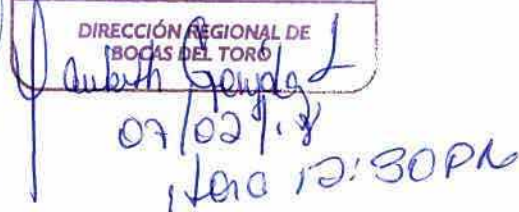 DIRECCIÓN REGIONAL DE
BOCAS DEL TORO
07/02/18
Hora 12:30PM